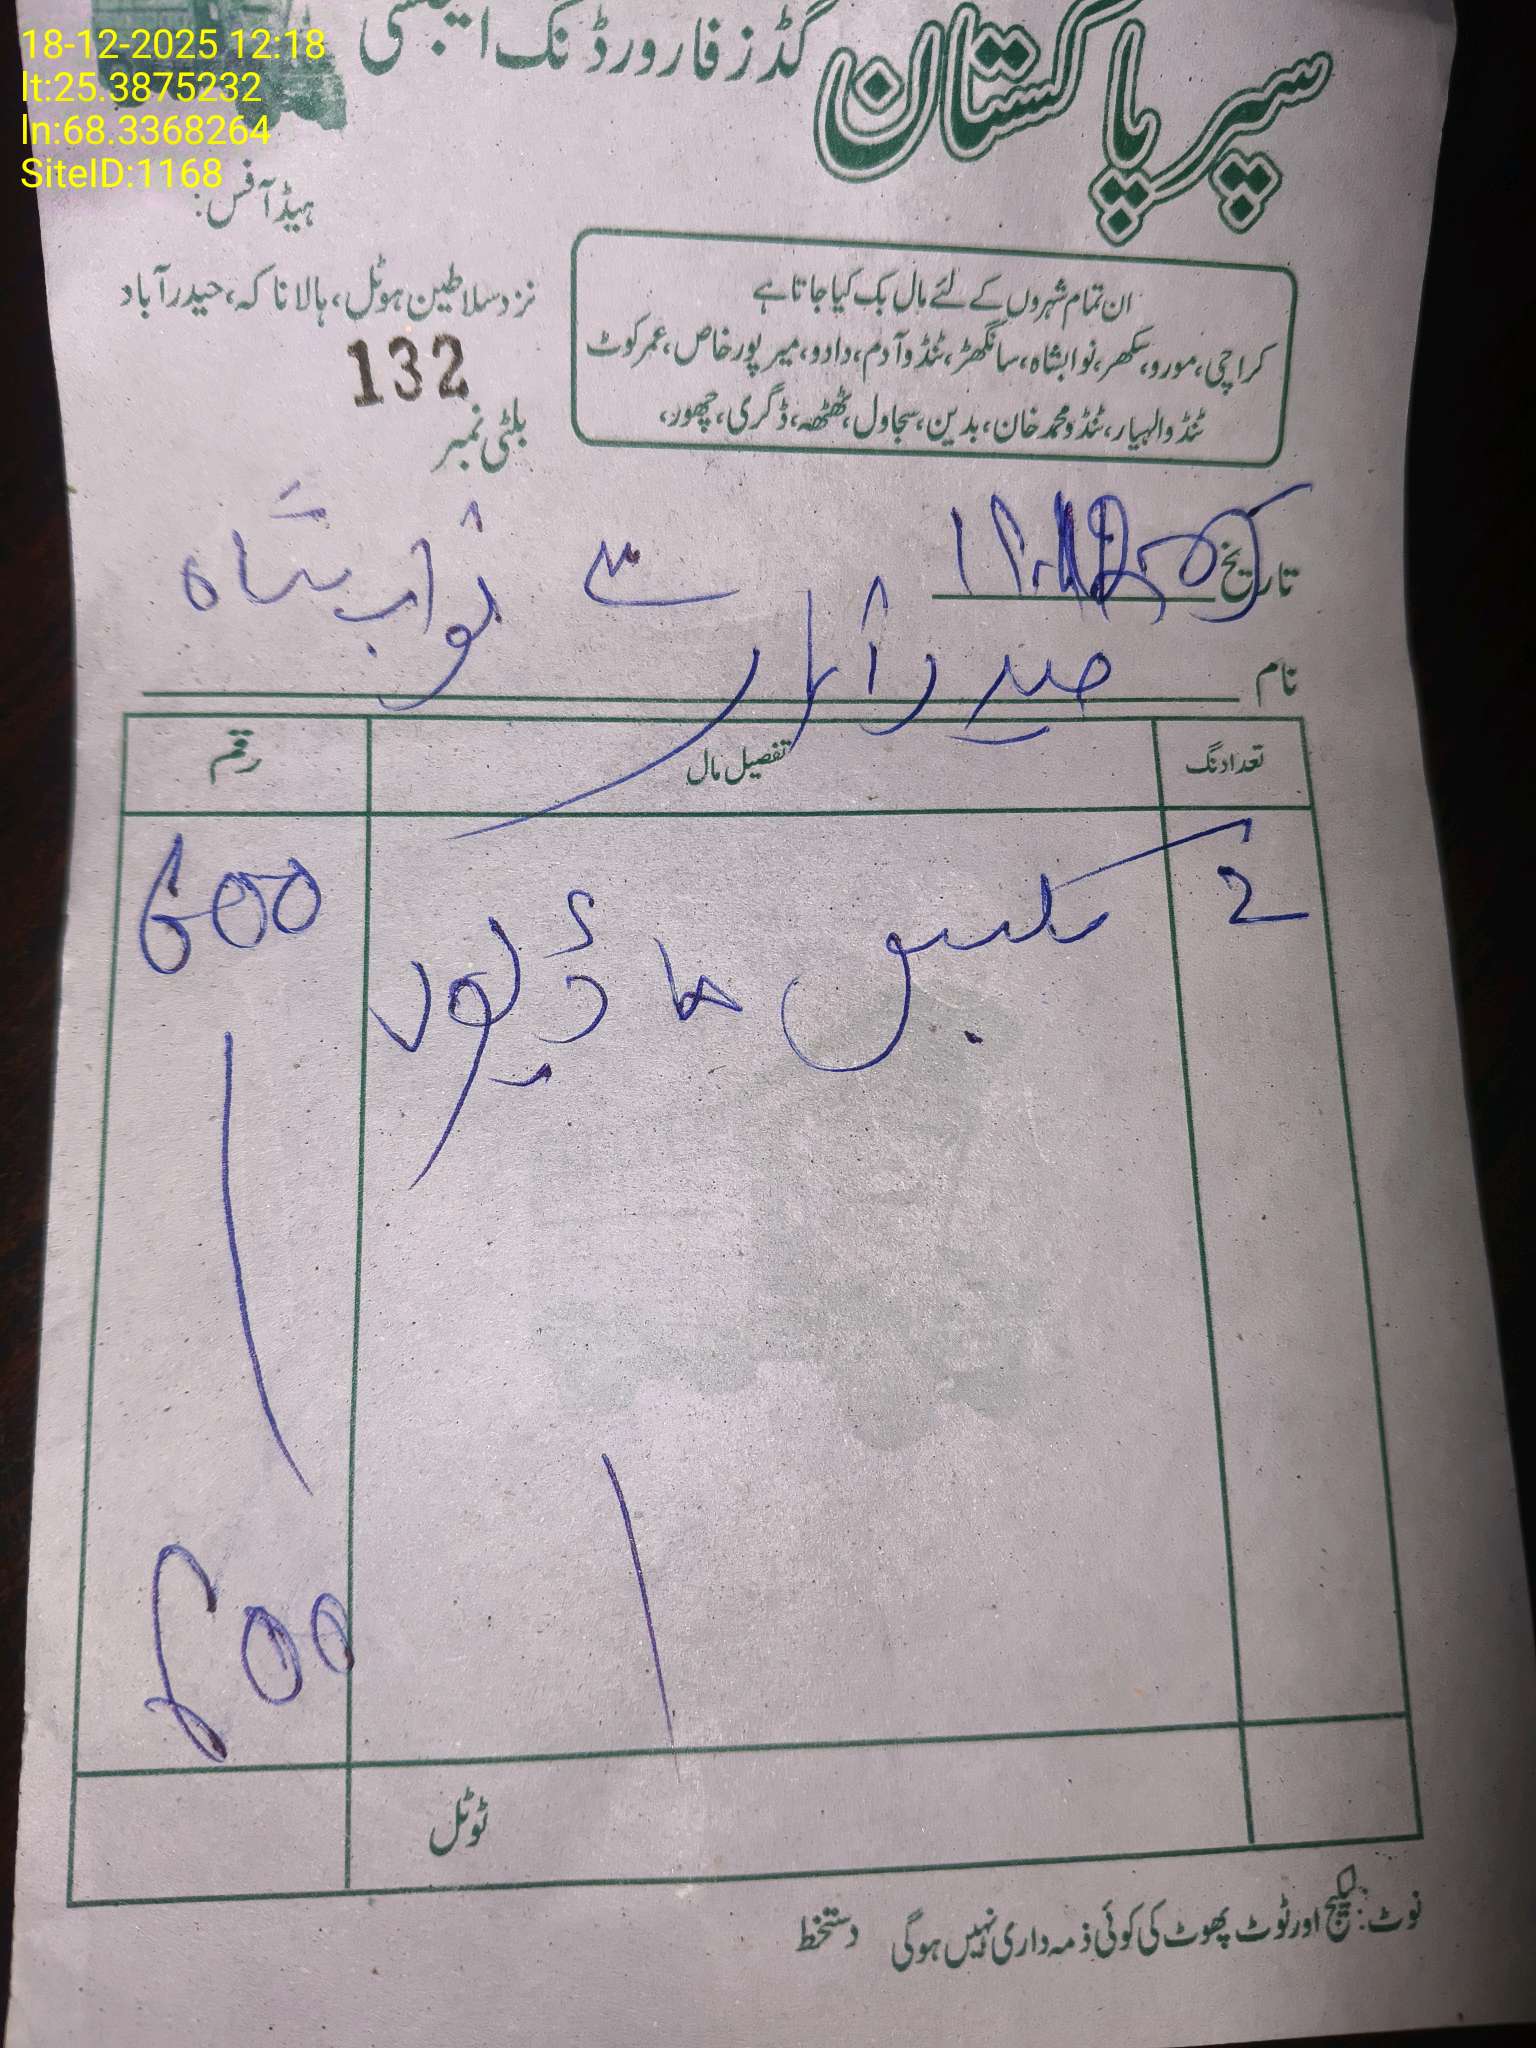 18-12-2025 12:18
lt:25.3875232
ln:68.3368264
SiteID:1168
سپر پاکستان گڈز فارورڈنگ ایجنسی
ہیڈ آفس:
نزد سلاطین ہوٹل، ہالا ناکہ، حیدرآباد
ان تمام شہروں کے لئے مال بک کیا جاتا ہے
کراچی، مورو، سکھر، نوابشاہ، سانگھڑ، ٹنڈوآدم، دادو، میرپورخاص، عمرکوٹ
ٹنڈوالہیار، ٹنڈومحمدخان، بدین، سجاول، ٹھٹھہ، ڈگری، چھور،
132
بلٹی نمبر
تاریخ
نام حیدرآباد سے نواب شاہ
تعداد نگ تفصیل مال رقم
2 600
600
ٹوٹل
نوٹ: لیکیج اور ٹوٹ پھوٹ کی کوئی ذمہ داری نہیں ہوگی دستخط